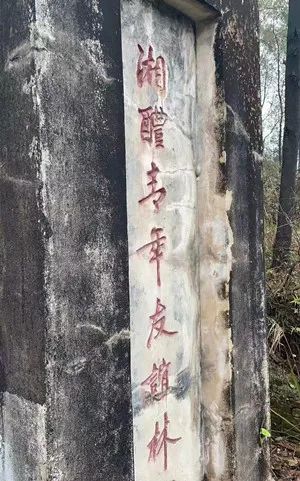 湘醴青年友谊林